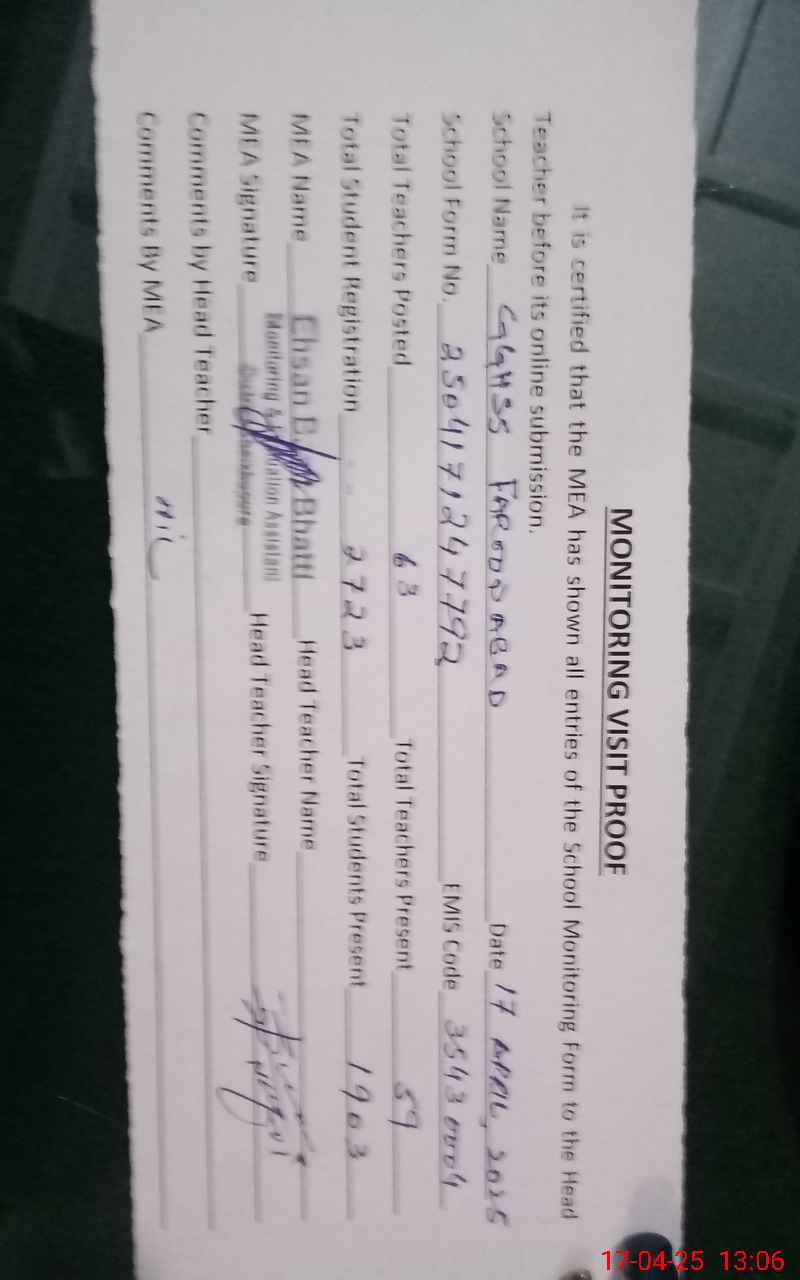 MONITORING VISIT PROOF
It is certified that the MEA has shown all entries of the School Monitoring Form to the Head
Teacher before its online submission.
School Name GGHSS FAROOQABAD Date 17 APRIL, 2025
School Form No. 2504171247792 EMIS Code 35430004
Total Teachers Posted 63 Total Teachers Present 59
Total Student Registration 2723 Total Students Present 1903
MEA Name Ehsan Bhatti Head Teacher Name
Monitoring & Assistant
MEA Signature Head Teacher Signature
Comments by Head Teacher
Comments By MEA nil
17-04-25 13:06